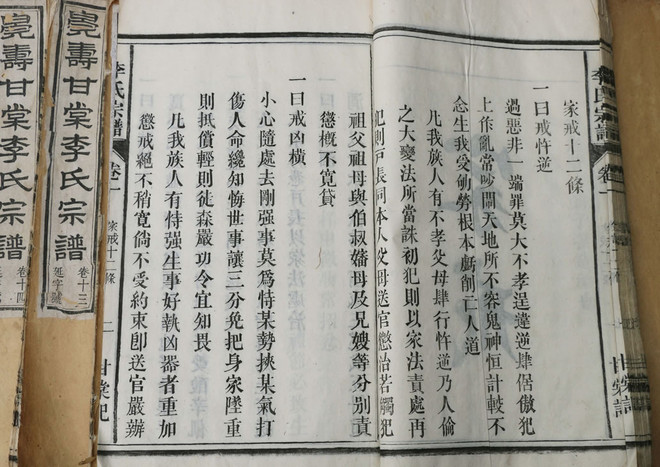 家戒十二條
一曰戒忤逆
過惡非一端罪莫大不孝逞違逆肆倨傲犯
上作亂當吸聞天地所不容鬼神恒計較不
念生我愛劬勞根本虧削亡人道
凡我族人有不孝父母肆行忤逆乃人倫
之大變法所當誅初犯則以家法責處再
犯則戶長同本人父母送官懲治若觸犯
祖父祖母與伯叔嬸母及兄嫂等分別責
懲槪不寬貸
一曰戒凶橫
小心隨處去剛强事莫爲恃某勢挾某氣打
傷人命纔知悔世事讓三分免把身家墜重
則抵償輕則徒森嚴功令宜知畏
凡我族人有恃强生事好執凶器者重加
懲戒經不稍寬倘不受約束卽送官嚴辦
李氏宗譜
卷一
甘棠記
李氏宗譜
卷一
家戒十二條
二
甘棠記
甘棠李氏宗譜
卷十三
延字號
壽甘棠李氏宗譜
卷十四